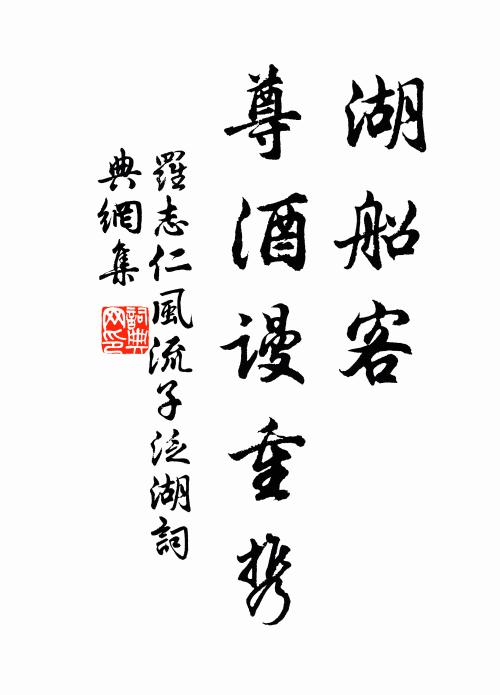 湖船客
尊酒谩重携
羅志仁風流子泛湖詞
典網集
詞典网印